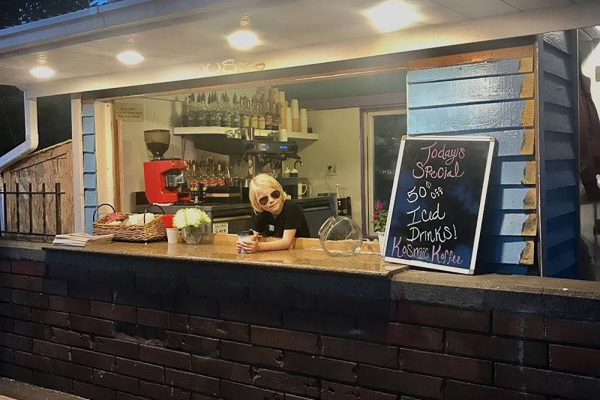 Today's
Special
50% off
Iced
Drinks!
Kosmic Koffee